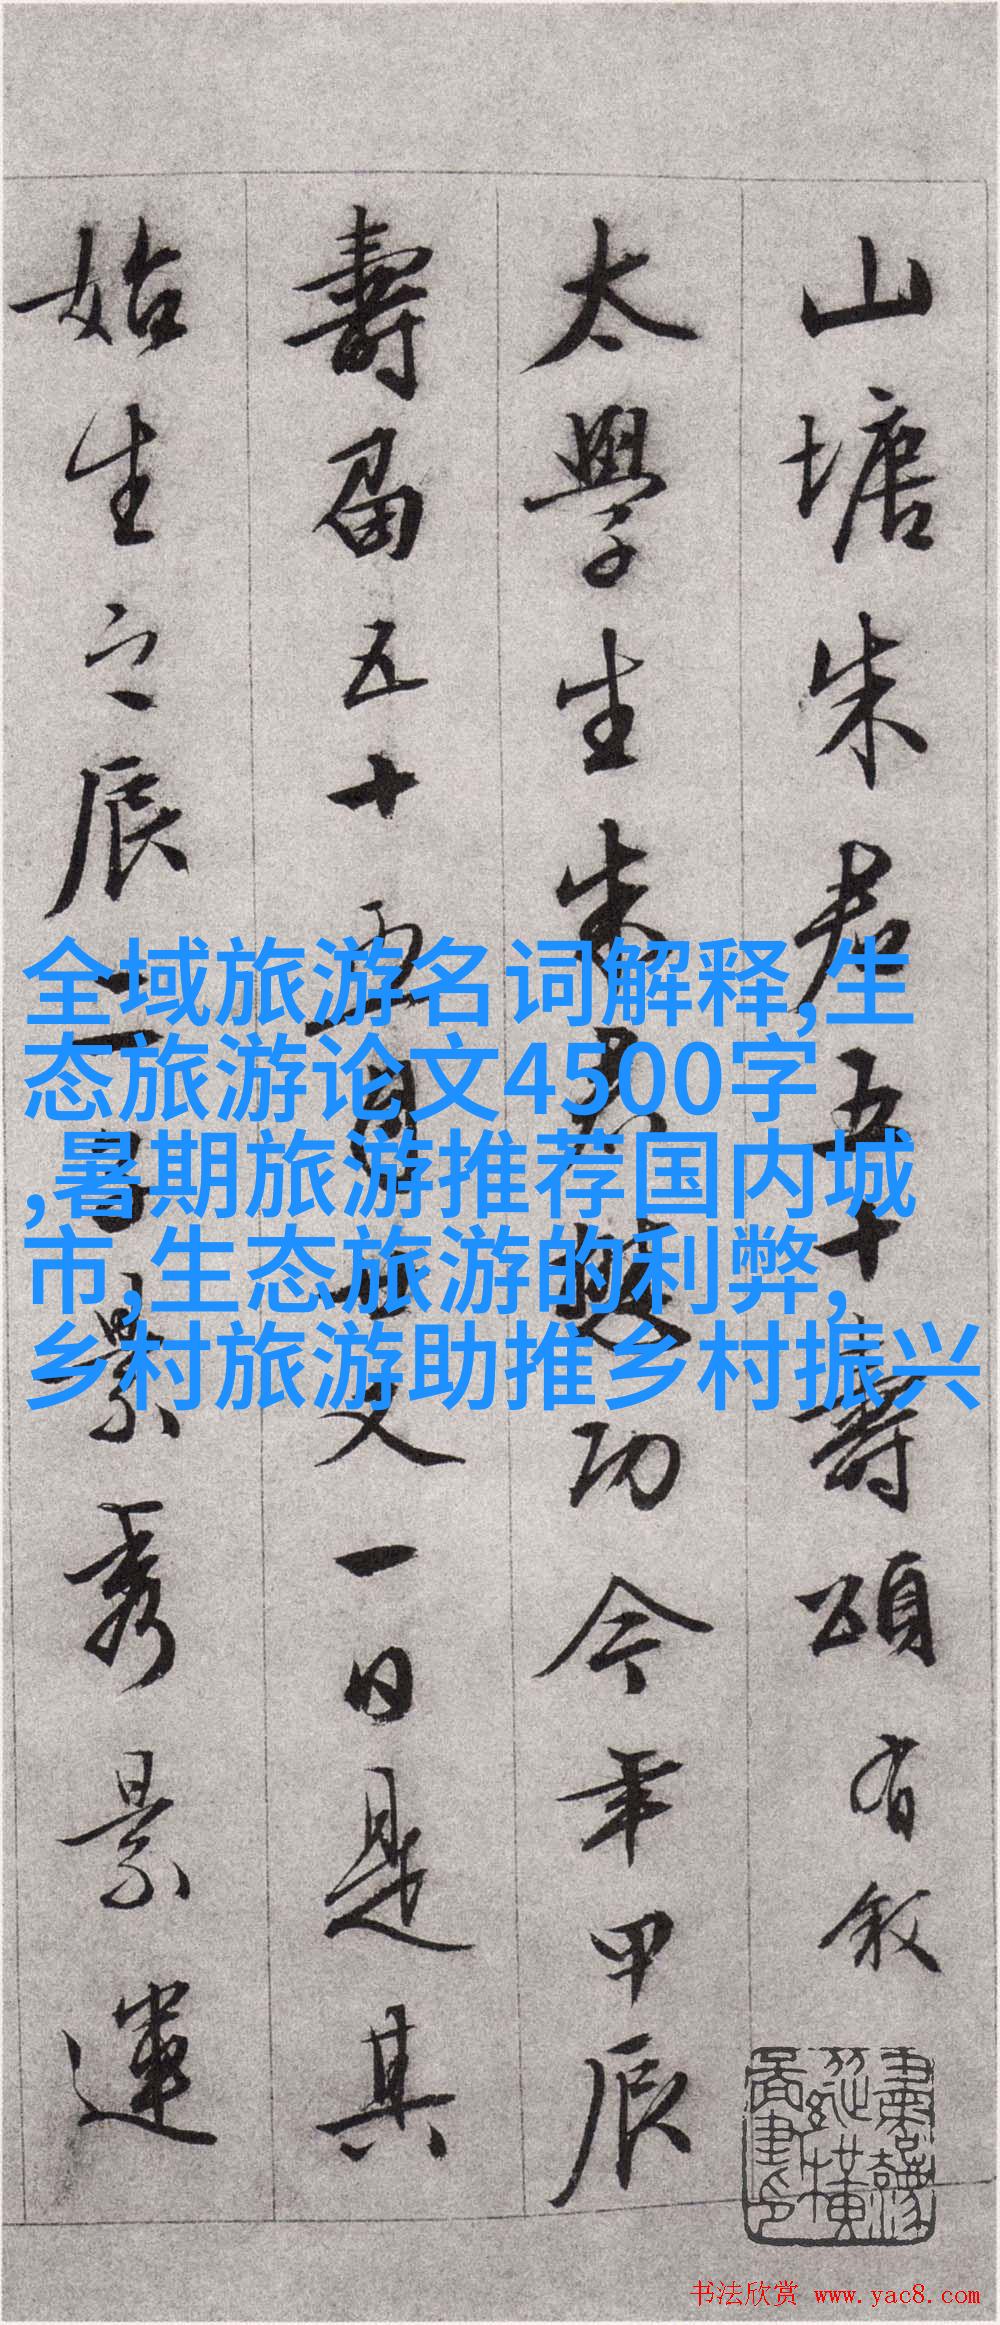 山塘朱君五十壽頌有敘
太學生朱君懋功今年甲辰
壽五十月又一日是其
始生之辰景秀景運
全域旅游名词解释,生
态旅游论文4500字
,暑期旅游推荐国内城
市,生态旅游的利弊,
乡村旅游助推乡村振兴
书法欣赏 www.yac8.com